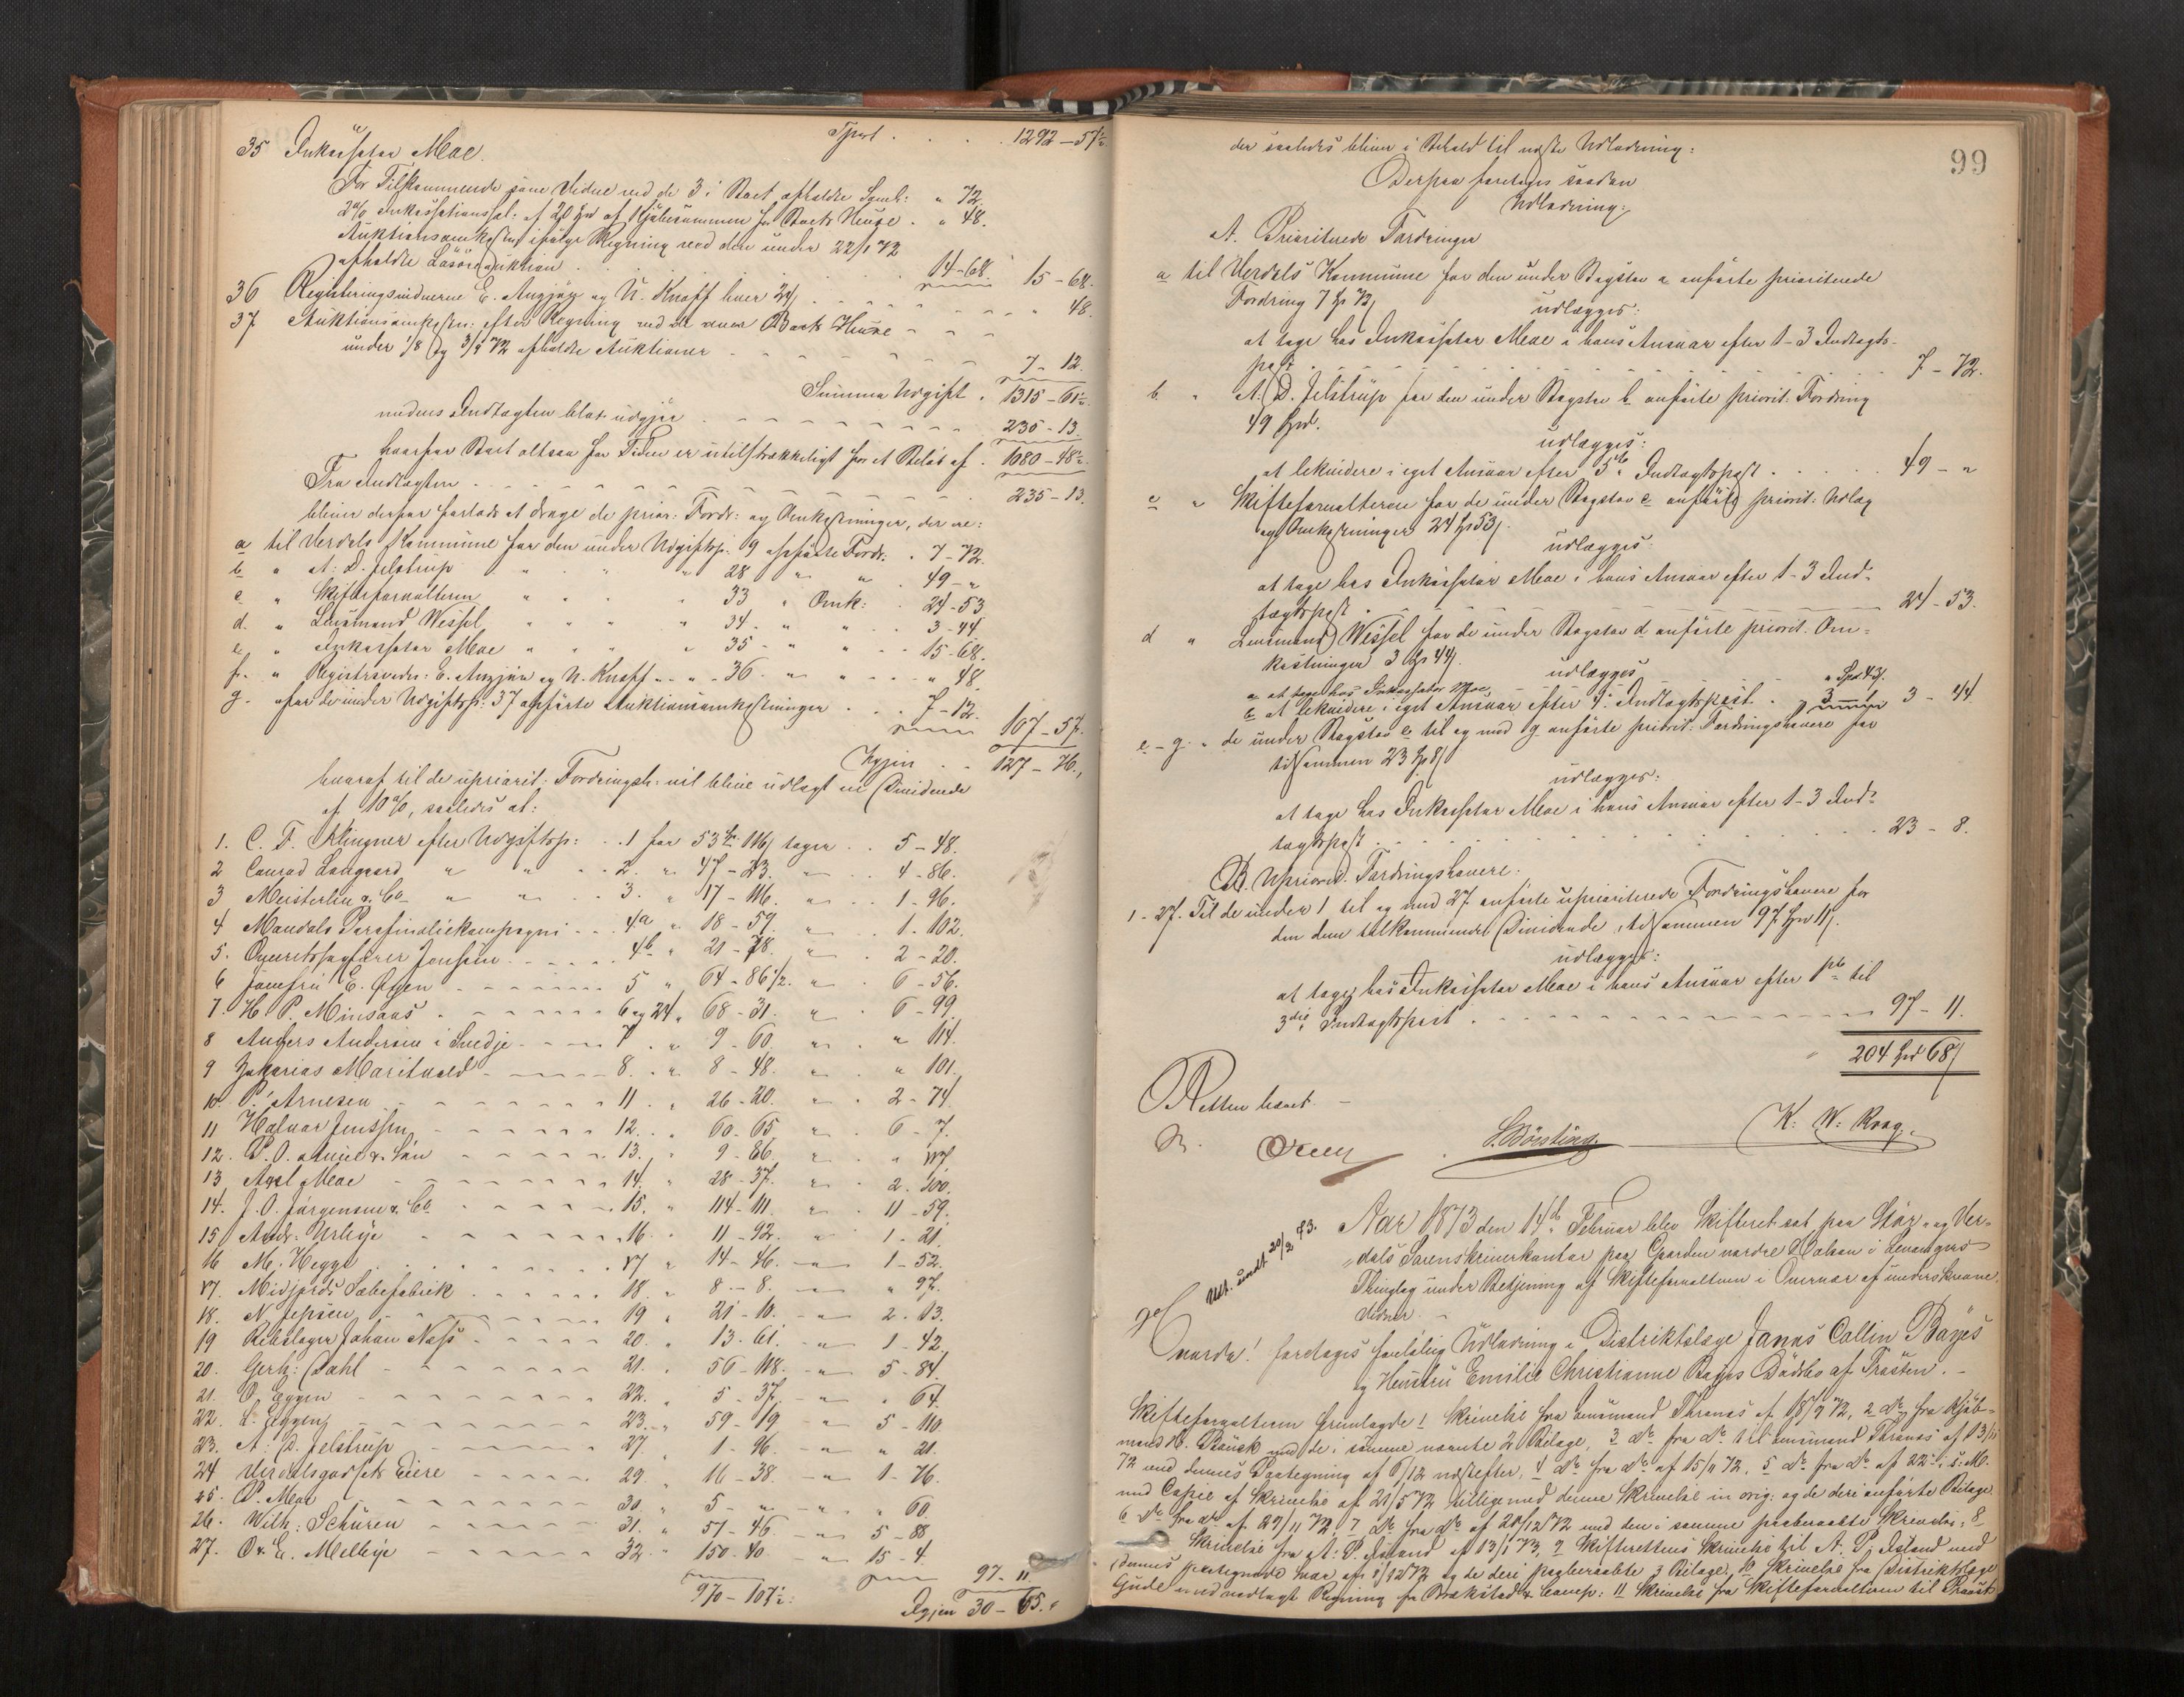 Tpart . . . 1292 - 57½
35 Inkassator Moe.
For Tilkommende som Vidne ved de 3 i Boet afholdte Saml: " 72.
2% Inkassationssal: af 20 Spd af Kjøbesummen for Boets Huse . " 48.
Auktionsomkostn: ifølge Regning ved den under 22/1 72
afholdte Løsøreauktion . . . 14-68. 15 - 68.
36 Registreringsvidnerne E. Anzjøn og N. Knoff hver 24 . . . " 48.
37 Auktionsomkostn: efter Regning ved de over Boets Huse
under 1/8 og 3/9 72 afholdte Auktioner . . . 7 - 12.
Summa Udgift . 1315 - 61½.
medens Indtægten blot udgjør . . . 235 - 13.
hvorfor Boet altsaa for Tiden er utilstrækkeligt for et Beløb af . 1080 - 48½.
Fra Indtægten . . . 235 - 13.
bliver derfor forlods at drage de prior: Fordr: og Omkostninger, der ere:
a til Verdals Kommune for den under Udgiftsp: 9 opførte Fordr. . 7 - 72.
b " A: D. Jelstrup " " " 28 " " . 49 - "
c " Skifteforvalteren " " " 33 " Omk: . 24 - 53
d. " Lensmand Wessel " " " 34 . " " . . 3 - 44
e. " Inkassator Moe " " " 35 - " " - - 15 - 68.
f. " Registrervidn: E. Anzjøn og N. Knoff - " - 36. " " - " 48.
g. " for de under Udgiftsp: 37 opførte Auktionsomkostninger . . . 7 - 12.
107 - 57.
Igjen . . 127 - 76.
hvoraf til de upriorit: Fordringsh: vil blive udlagt en Dividende
af 10%, saaledes at:
1. C. F. Klingner efter Udgiftsp: . . 1 for 53 - 116 tager . . 5 - 48.
2 Conrad Langgaard " " . . 2. " 47 - 23. " . . 4 - 86.
3 Meisterlin & Co " " . . 3. " 17 - 116. " . . 1 - 96.
4 Mandals Parafinoliekompagni - . . 4a " 18 - 59. " . 1 - 102.
5. Overretssagfører Jenssen . - - . . 4b " 21 - 78. " . 2 - 20.
6 Jomfru E. Øyen - - - - - 5 " 64 - 86½. " . 6 - 56.
7. H. P. Minsaas . - - - - 6 og 24 " 68 - 31. " . 6 - 99.
8 Anders Andersen i Svedje - - - - 7 . " 9 - 60. " . " 114.
9 Zakarias Maritvold - - - - - 8. . " 8 - 48. " . " 101.
10. P. Arnesen - - - - - - 11 . " 26 - 20. " . 2 - 74.
11 Halvor Jenssen - - - - - 12. . " 60 - 65 " . 6 - 7.
12. P. O. Aune & Søn - - - - - 13. . " 9 - 86 " . "
13 Axel Moe - - - - - - 14. " 28 - 37. " . 2. 100.
14. J. O. Jørgensen & Co - - - - . 15. " 114 - 111. " . 11 - 59.
15 Andr: Urløye - - - - - . 16. . 11 - 92. " . 1 - 21.
16 M. Hegge . . . . . . . 17 " 14 - 46. - " 1 - 52.
17. Midjords Sæbefabrik . . . . . . 18. " 8 - 8. - " " 97.
18. N. Jepsen - - - - - - 19 " 21 - 10. - " 2. 13.
19 Rebslager Johan Næss - - - - - 20. " 13 - 61. " 1 - 42.
20. Gerh: Dahl - - - - - - 21. . 56 - 118. - " 5 - 84.
21. O. Eggen - - - - - - 22. . 5 - 37. - " " 64.
22. L. Eggen - - - - - - 23. " 59 - 19 - " 5 - 110.
23. A: D. Jelstrup - - - - - 27. 1 - 96. - " " 21.
24 Verdalsgodsets Eiere - - - - 29. . 16 - 38. - " 1 - 76.
25. P. Moe - - - - - - 30. " 5 - " - " " 60.
26. Wilh: Schüren - - - - - 31. " 57 - 46. - " 5 - 88.
27. O & E. Melbye - - - - - 32. " 150 - 40 - " 15 - 4.
970 - 107½. 97 - 11.
Igjen 30 - 65. "
99
der saaledes bliver i Behold til næste Udlodning:
Derpaa foretoges saadan
Udlodning:
A. Prioriterede Fordringer
a til Verdals Kommune for den under Bogstav a anførte prioriterede
Fordring 7 Sp 72
udlægges:
at tage hos Inkassator Moe i hans Ansvar efter 1 - 3 Indtægts-
post . . . 7 - 72.
b " A: D. Jelstrup for den under Bogstav b anførte priorit: Fordring
49 Spd.
udlægges:
at lekvidere i eget Ansvar efter 5te Indtægtspost . . . 49 - "
c " Skifteforvalteren for de under Bogstav c anførte priorit: Udlæg
og Omkostninger 24 Sp 53.
udlægges.
at tage hos Inkassator Moe i hans Ansvar efter 1 - 3 Ind-
tægtspost . . . 24 - 53.
d " Lensmand Wessel for de under Bogstav d anførte priorit: Om-
kostninger 3 Sp 44.
udlægges
a at tage hos Inkassator Moe . . . " Spd. 43.
b at lekvidere i eget Ansvar efter 4: Indtægtspost . " 3 - 1 3 - 44
e - g. " de under Bogstav e til og med g anførte priorit: Fordringshavere for
tilsammen 23 Sp 8
udlægges:
at tage hos Inkassator Moe i hans Ansvar efter 1 - 3 Ind-
tægtspost . . . 23 - 8.
B. Upriorit: Fordringshavere:
1 - 27. Til de under 1 til og med 27 anførte uprioriterede Fordringshavere for
den dem tilkommende Dividende, tilsammen 97 Spd 11.
udlægges:
at tage hos Inkassator Moe i hans Ansvar efter 1ste til
3die Indtægtspost . . . 97 - 11.
204 Spd 68
Retten hævet. -
S. Bönsting K: W: Krag.
Aar 1873 den 14de Februar blev Skifteret sat paa Stør- og Ver-
dals Sorenskriverkontor paa Gaarden nordre Halsan i Levangers
Thinglag under Betjening af Skifteforvalteren i Overvær af underskrevne
Vidner. -
Udl. sendt 20/2 73.
Hvorda! foretoges foreløbig Udlodning i Distriktslæge Jonas Collin Bøyes
og Hustru Emilie Christianne Bøyes Dødsbo af Frosten. -
Skifteforvalteren fremlagde 1 Skrivelse fra Lensmand Thranes af 18/9 72, 2 do fra Kjøb-
mand H. Bauck med de i samme nævnte 2 Bilage, 3 do fra do til Lensmand Thranes af 13/11
72 med dennes Paategning af 6/12 næstefter, 4 do fra do af 15/11 72, 5 do fra do af 22: s: M.
med Copie af Skrivelse af 21/5 72 tilligemed denne Skrivelse in orig: og de deri anførte Bilage.
6 do fra do af 27/11 72, 7 do fra do af 20/12 72 med den i samme paaberaabte Skrivelse, 8
Skrivelse fra A: P: Østand af 13/1 73, 9 Skifterettens Skrivelse til A: P: Østand med
dennes paategnede Svar af 8/12 72 og de deri paaberaabte 3 Bilage, 10 Skrivelse fra Distriktslæge
Gude med vedlagt Regning fra Brækstad & Comp: 11 Skrivelse fra Skifteforvalteren til Provst